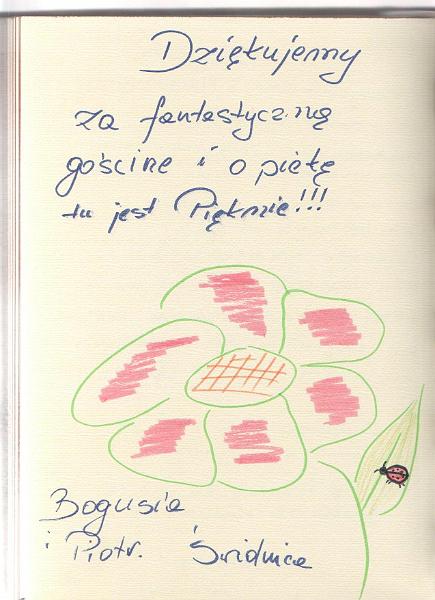 Dziękujemy
za fantastyczną
gościne i o piekę
tu jest Pięknie!!!
Bogusia
i Piotr. Świdnica